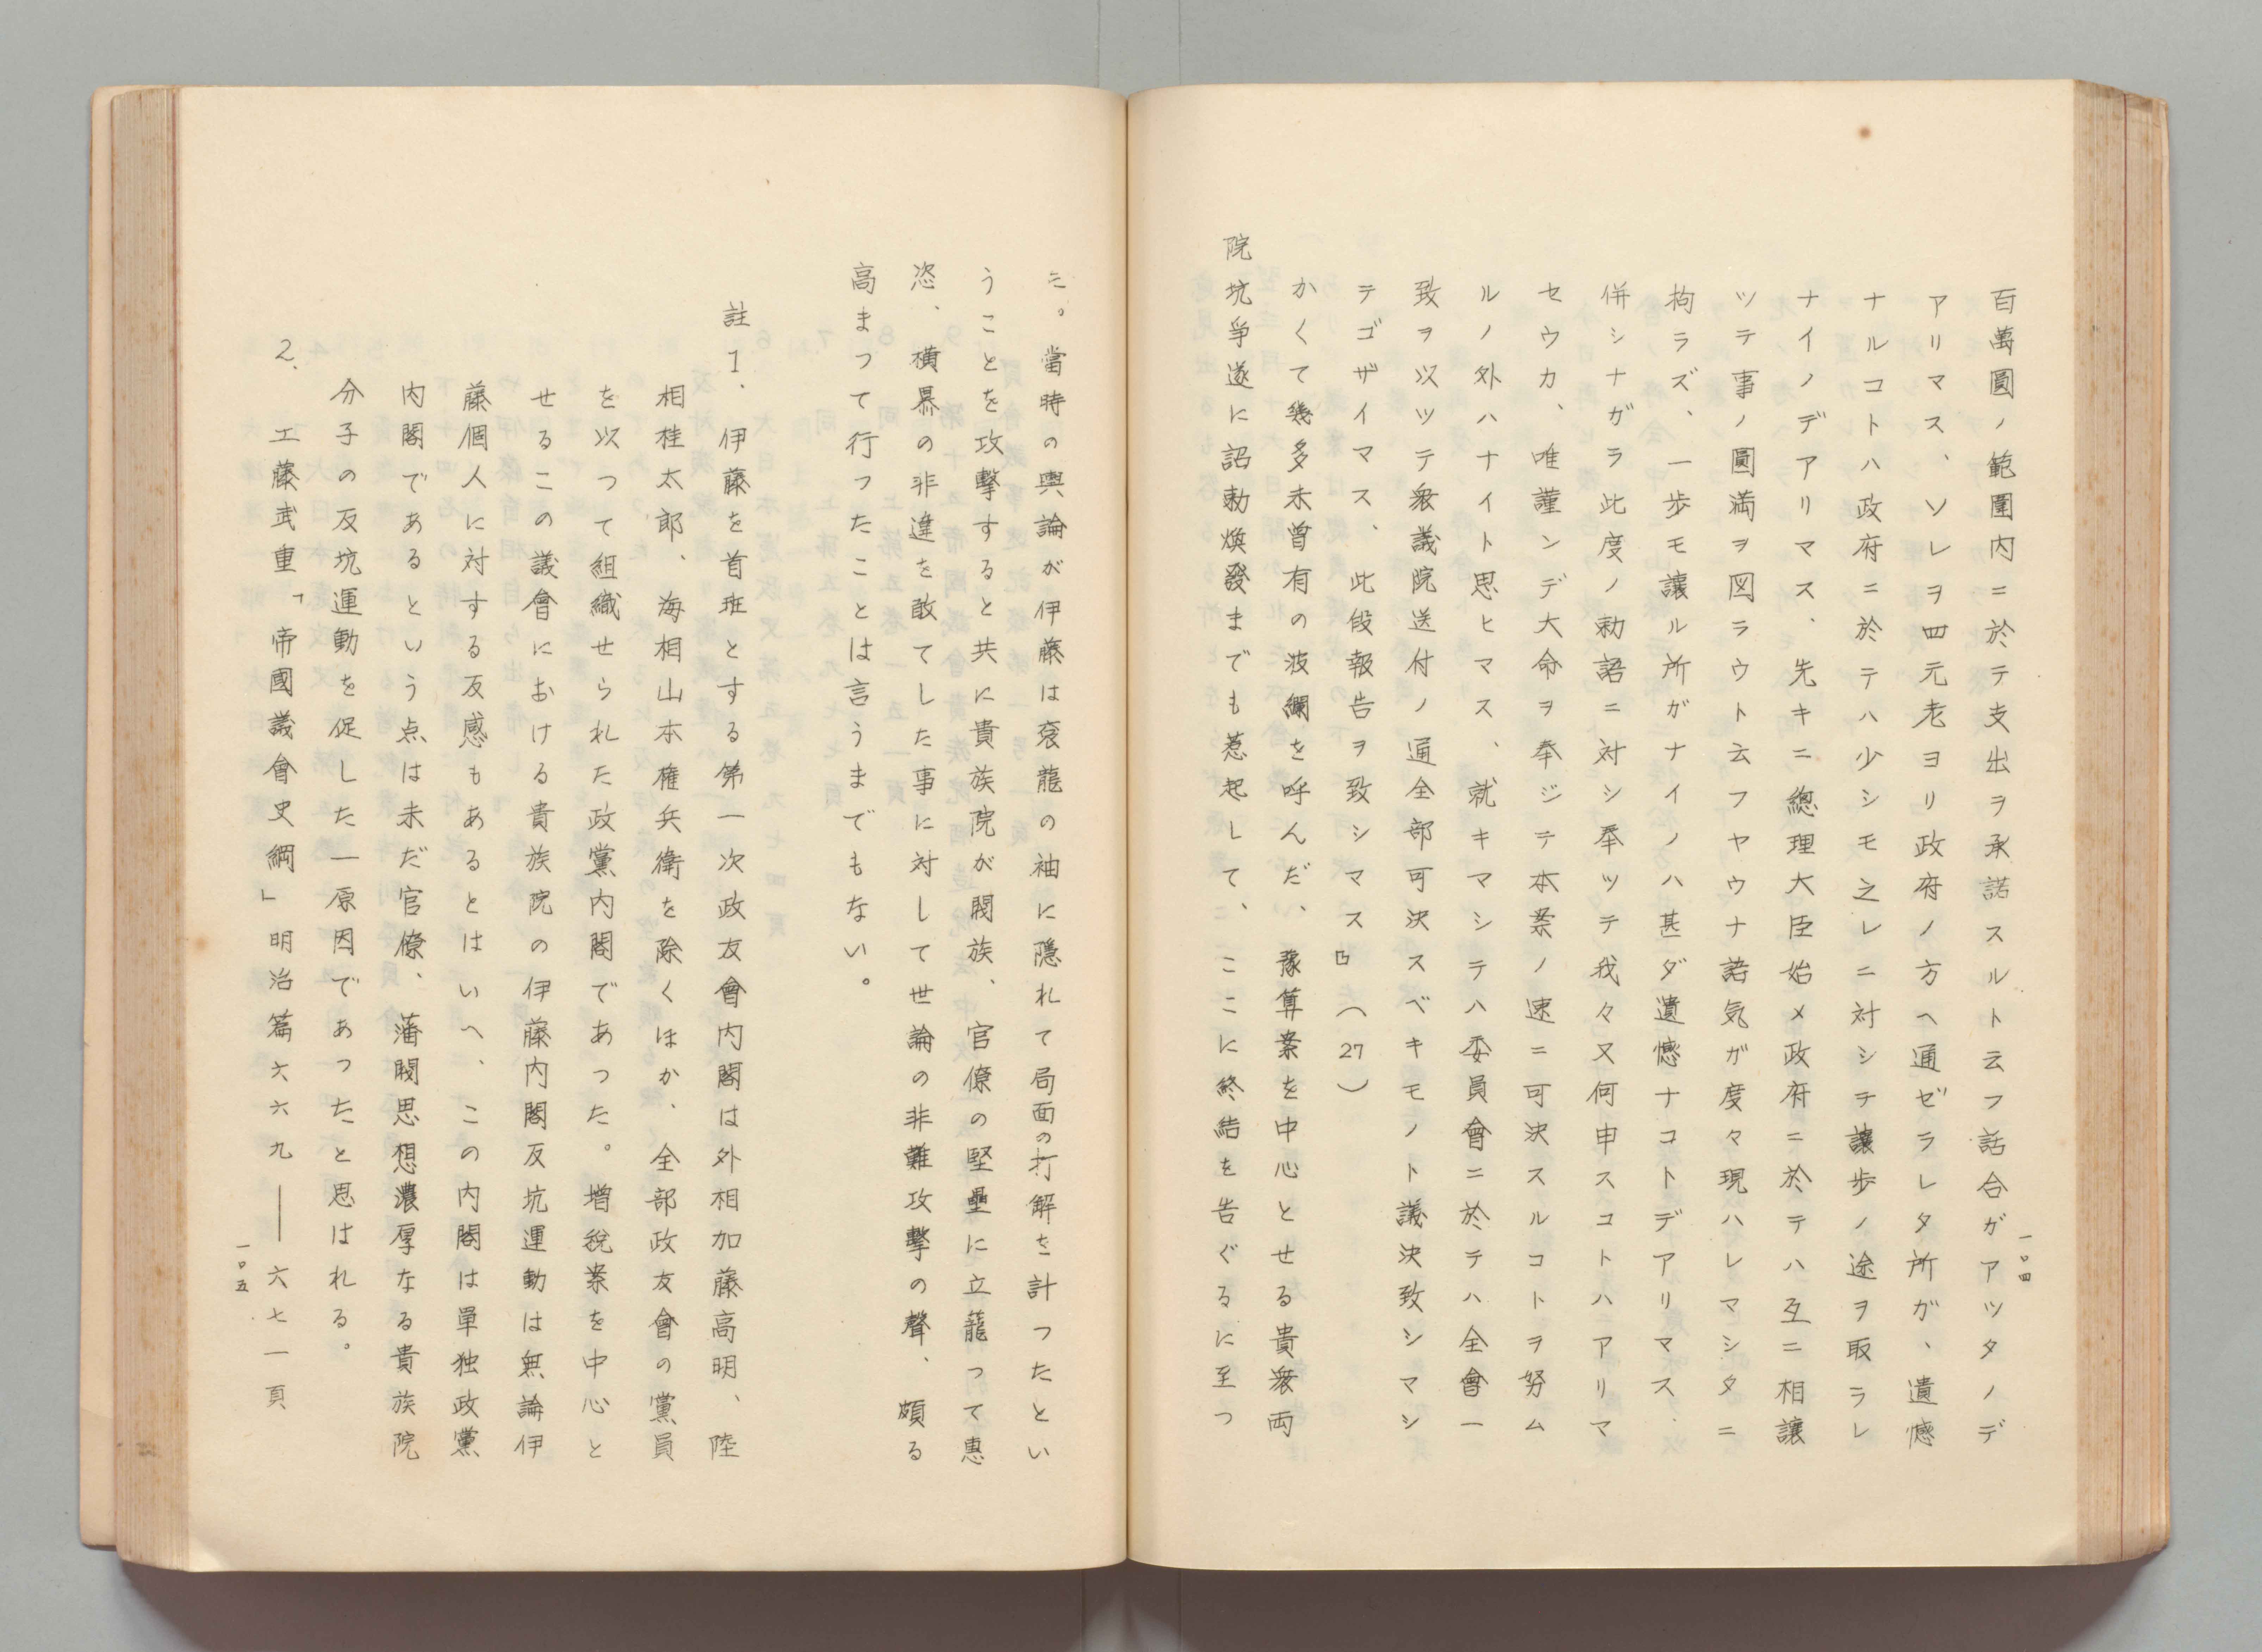 百萬圓ノ範圍内ニ於テ支出ヲ承諾スルト云フ話合ガアツタノデ
アリマス、ソレヲ四元老ヨリ政府ノ方ヘ通ゼラレタ所ガ、遺憾
ナルコトハ政府ニ於テハ少シモ之レニ対シテ讓歩ノ途ヲ取ラレ
ナイノデアリマス、先キニ總理大臣始メ政府ニ於テハ互ニ相讓
ツテ事ノ圓満ヲ図ラウト云フヤウナ語気ガ度々現ハレマシタニ
拘ラズ、一歩モ讓ル所ガナイノハ甚ダ遺憾ナコトデアリマス、
併シナガラ此度ノ勅語ニ対シ奉ツテ我々又何申スコトハアリマ
セウカ、唯謹ンデ大命ヲ奉ジテ本案ノ速ニ可決スルコトヲ努ム
ルノ外ハナイト思ヒマス、就キマシテハ委員會ニ於テハ全會一
致ヲ以ツテ衆議院送付ノ通全部可決スベキモノト議決致シマシ
テゴザイマス、此段報告ヲ致シマス』(27)
かくて幾多未曾有の波瀾を呼んだ、豫算案を中心とせる貴衆両
院坑爭遂に詔勅煥發までも惹起して、ここに終結を告ぐるに至つ
一〇四
た。當時の輿論が伊藤は袞龍の袖に隠れて局面の打解を計つたとい
うことを攻撃すると共に貴族院が閥族、官僚の堅壘に立籠つて惠
恣、横暴の非違を敢てした事に対して世論の非難攻撃の聲、頗る
高まつて行つたことは言うまでもない。
註 1、伊藤を首班とする第一次政友會内閣は外相加藤高明、陸
相桂太郎、海相山本権兵衛を除くほか、全部政友會の黨員
を以つて組織せられた政黨内閣であつた。増税案を中心と
せるこの議會における貴族院の伊藤内閣反坑運動は無論伊
藤個人に対する反感もあるとはいへ、この内閣は單独政黨
内閣であるという点は未だ官僚、藩閥思想濃厚なる貴族院
分子の反坑運動を促した一原因であつたと思はれる。
2、工藤武重「帝國議會史綱」明治篇六六九——六七一頁
一〇五